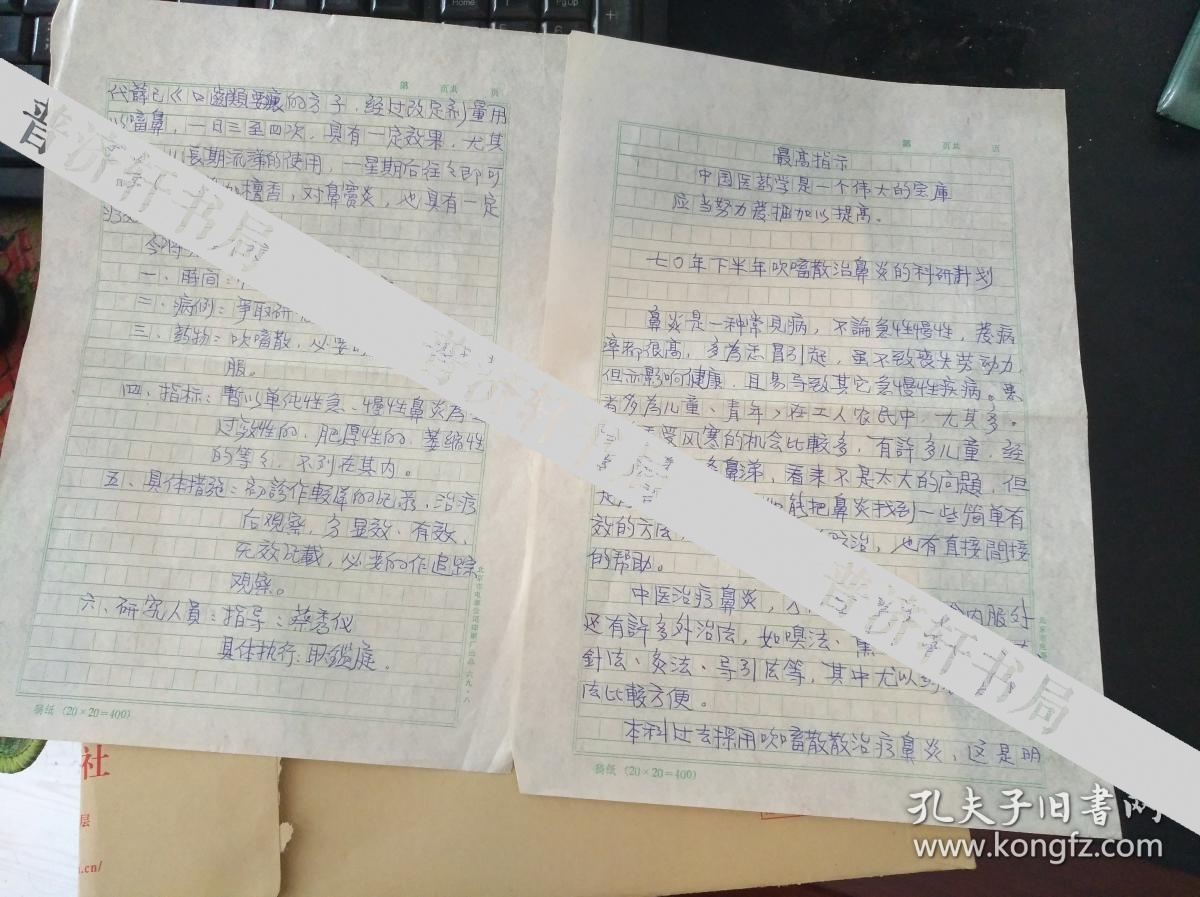 第 页共 页
最高指示
中国医药学是一个伟大的宝库
应当努力发掘加以提高。
七〇年下半年吹嗃散治鼻炎的科研計划
鼻炎是一种常見病,不論急性慢性,发病
率都很高,多為感冒引起,虽不致丧失劳动力,
但亦影响健康,且易导致其它急慢性疾病。患
者多為儿童、青年,在工人农民中,尤其多。
受风寒的机会比較多,有許多儿童,经
鼻涕,看来不是太大的問題,但
能把鼻炎找到一些简单有
效的方法, 防治,也有直接間接
的帮助。
中医治疗鼻炎, 内服外
还有許多外治法,如嗅法、熏
針法、灸法、导引法等,其中尤以
法比較方便。
本科过去採用吹嗃散散治疗鼻炎,这是明
稿纸(20×20=400)
第 页共 页
代薛己《口齒類要》的方子,经过改定剂量用
以嗃鼻,一日三至四次,具有一定效果,尤其
儿長期流涕的使用,一星期后往々即可
檀香,对鼻竇炎,也具有一定
一、时间:
二、病例:爭取研
三、药物:吹嗃散,必要
服。
四、指标:暫以单纯性急、慢性鼻炎為
过敏性的,肥厚性的,萎缩性
的等々,不列在其内。
五、具体措施:初診作較详的记录,治疗
后观察,分显效、有效、
无效记載,必要的作追踪
观察。
六、研究人員:指导:蔡秀仪
具体执行:耿鑑庭.
稿纸(20×20=400)
普济轩书局
普济轩书局
普济轩书局
社
层
.cn/
孔夫子旧书网
www.kongfz.com